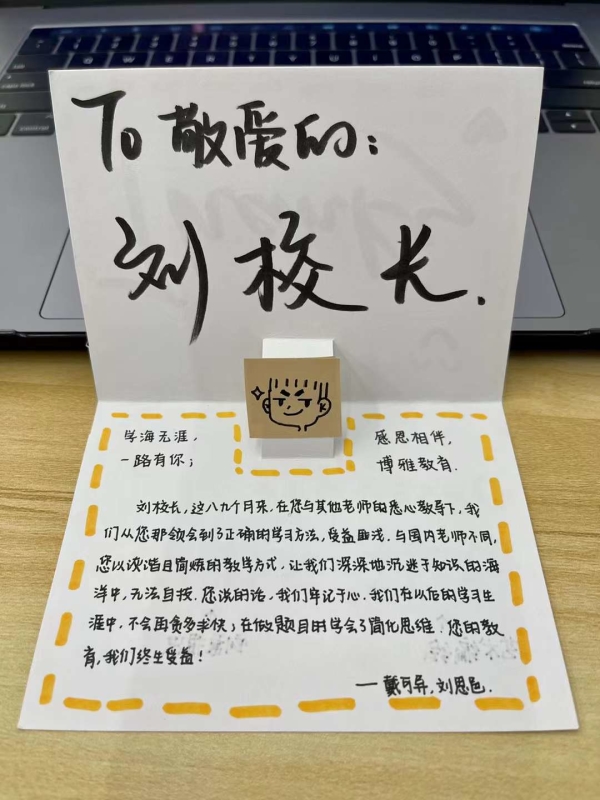 To 敬爱的：
刘校长.
学海无涯，
一路有你；
感恩相伴，
博雅教育.
刘校长，这八九个月来，在您与其他老师的悉心教导下，我
们从您那领会到了正确的学习方法，受益匪浅．与国内老师不同，
您以诙谐且简炼的教学方式，让我们深深地沉迷于知识的海
洋中，无法自拔．您说的话，我们牢记于心．我们在以后的学习生
涯中，不会再贪多求快；在做题目时学会了简化思维．您的教
育，我们终生受益！
——戴可异，刘思邑．